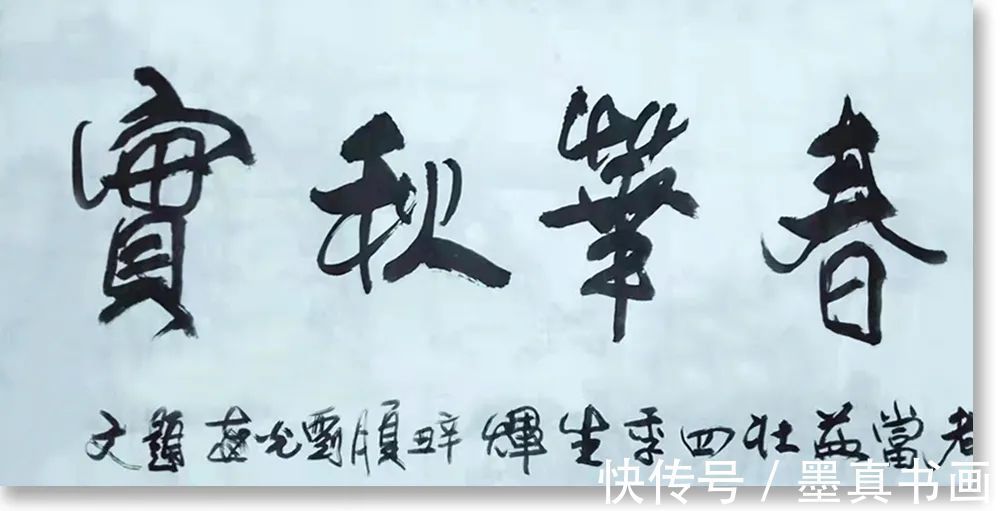 春華秋實
老當益壯四季生輝辛丑夏劉光題文
快传号 / 墨真书画